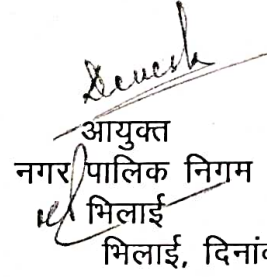 आयुक्त
नगर पालिक निगम
भिलाई
भिलाई, दिनांक